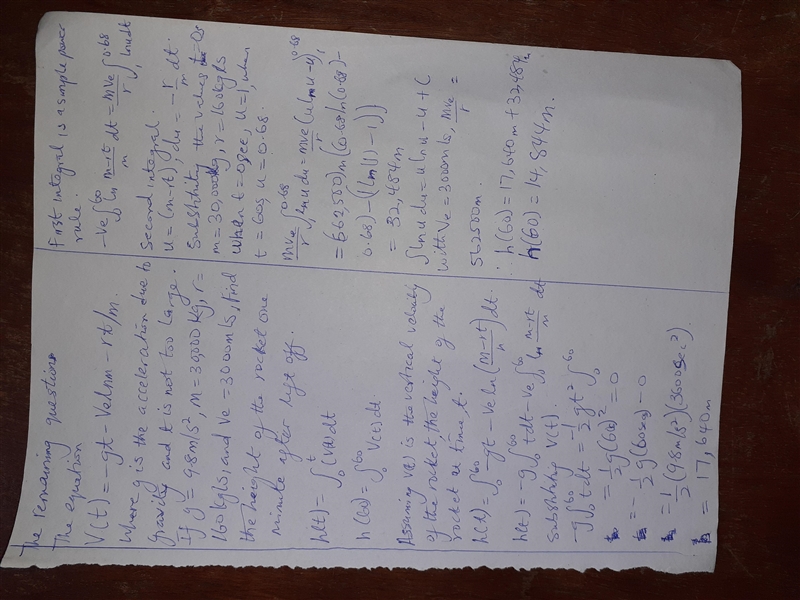 The remaining question
The equation
V(t) = -gt - Ve ln m - rt/m.
where g is the acceleration due to
gravity and t is not too large.
If g = 9.8m/s², m = 30,000 kg, r =
160 kg/s, and Ve = 3000m/s, find
the height of the rocket one
minute after lift off.
h(t) = ∫₀ᵗ (V(t) dt
h(60) = ∫₀⁶⁰ V(t) dt.
Assuming V(t) is the vertical velocity
of the rocket the height of the
rocket at time t.
h(t) = ∫₀⁶⁰ -gt - ve ln (m-rt/m) dt.
h(t) = -g ∫₀⁶⁰ t dt - ve ∫₀⁶⁰ ln m-rt/m dt
Substituting V(t).
-g ∫₀⁶⁰ t dt = -1/2 gt² ∫₀⁶⁰
= 1/2 g(60)² = 0
= -1/2 g(60sec) - 0
= 1/2 (9.8m/s²)(3600sec²)
= 17,640m
First integral is a simple power
rule.
-Ve ∫₀⁶⁰ ln m-rt/m dt = mve/r ∫₁^0.68 ln u dt
Second integral.
u = (m-rt), du = -r/m dt.
Substituting the values
m = 30,000kg, r = 160kg/s
when t = 0sec, u = 1, when
t = 60s, u = 0.68.
mve/r ∫₁^0.68 ln u du = mve/r (u ln u - u)₁^0.68
= (562,500)m ((0.68 ln (0.68) -
0.68) - (ln(1) - 1))
= 32,484m
∫ ln u du = u ln u - u + C
with Ve = 3000m/s, mve/r =
562500m.
∴ h(60) = 17,640m + 32,484m
h(60) = 14,844m.